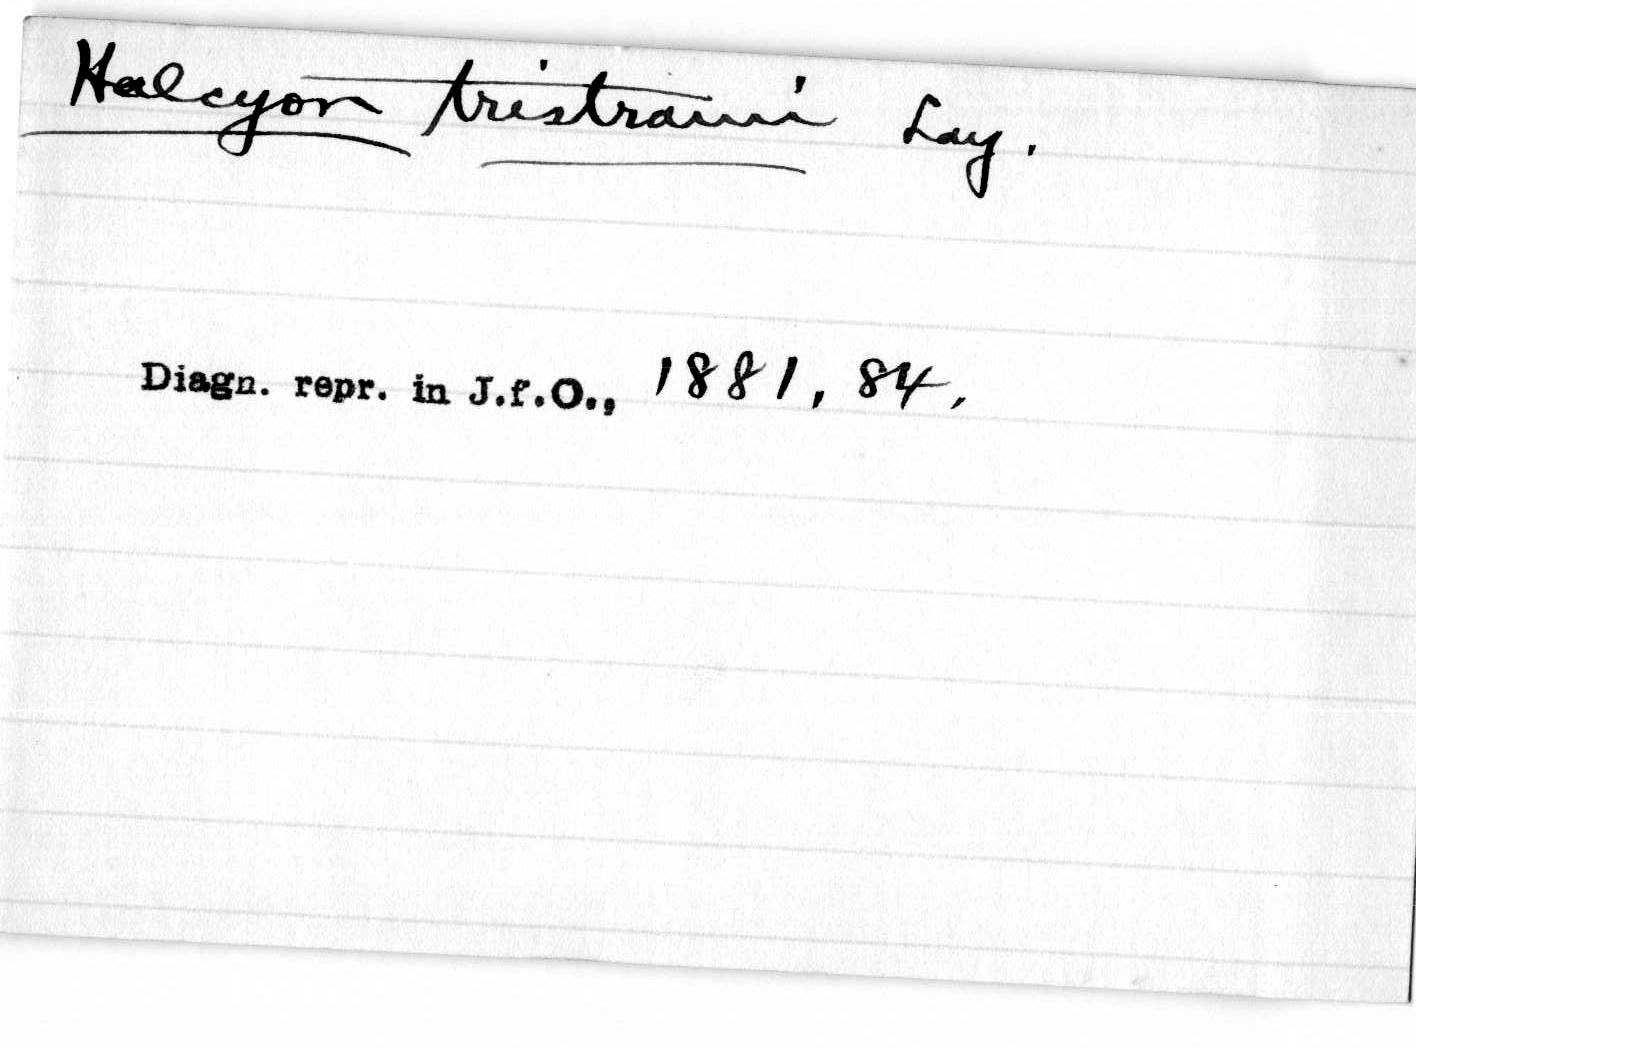 Halcyon tristrami Lay.
Diagn. repr. in J.f.O., 1881, 84,